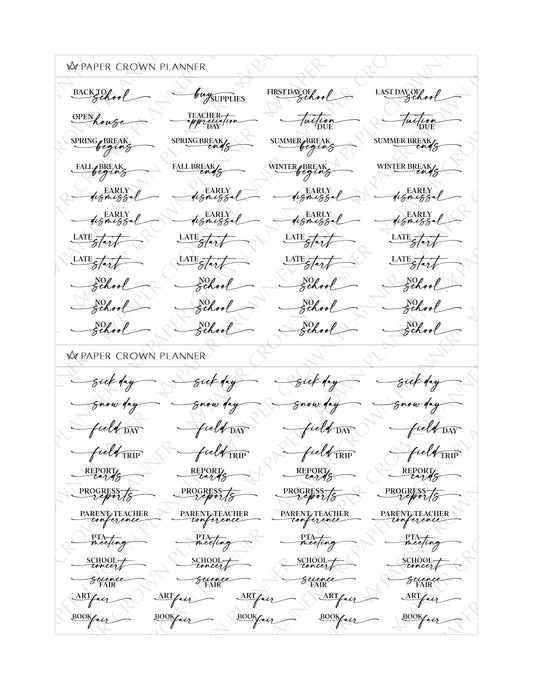 PAPER CROWN PLANNER
BACK TO school buy SUPPLIES FIRST DAY OF school LAST DAY OF school
OPEN house TEACHER appreciation DAY tuition DUE tuition DUE
SPRING BREAK begins SPRING BREAK ends SUMMER BREAK begins SUMMER BREAK ends
FALL BREAK begins FALL BREAK ends WINTER BREAK begins WINTER BREAK ends
EARLY dismissal EARLY dismissal EARLY dismissal EARLY dismissal
EARLY dismissal EARLY dismissal EARLY dismissal EARLY dismissal
LATE start LATE start LATE start LATE start
LATE start LATE start LATE start LATE start
NO school NO school NO school NO school
NO school NO school NO school NO school
NO school NO school NO school NO school
PAPER CROWN PLANNER
sick day sick day sick day sick day
snow day snow day snow day snow day
field DAY field DAY field DAY field DAY
field TRIP field TRIP field TRIP field TRIP
REPORT cards REPORT cards REPORT cards REPORT cards
PROGRESS reports PROGRESS reports PROGRESS reports PROGRESS reports
PARENT TEACHER conference PARENT TEACHER conference PARENT TEACHER conference PARENT TEACHER conference
PTA meeting PTA meeting PTA meeting PTA meeting
SCHOOL concert SCHOOL concert SCHOOL concert SCHOOL concert
science FAIR science FAIR science FAIR science FAIR
ART fair ART fair ART fair ART fair ART fair
BOOK fair BOOK fair BOOK fair BOOK fair BOOK fair